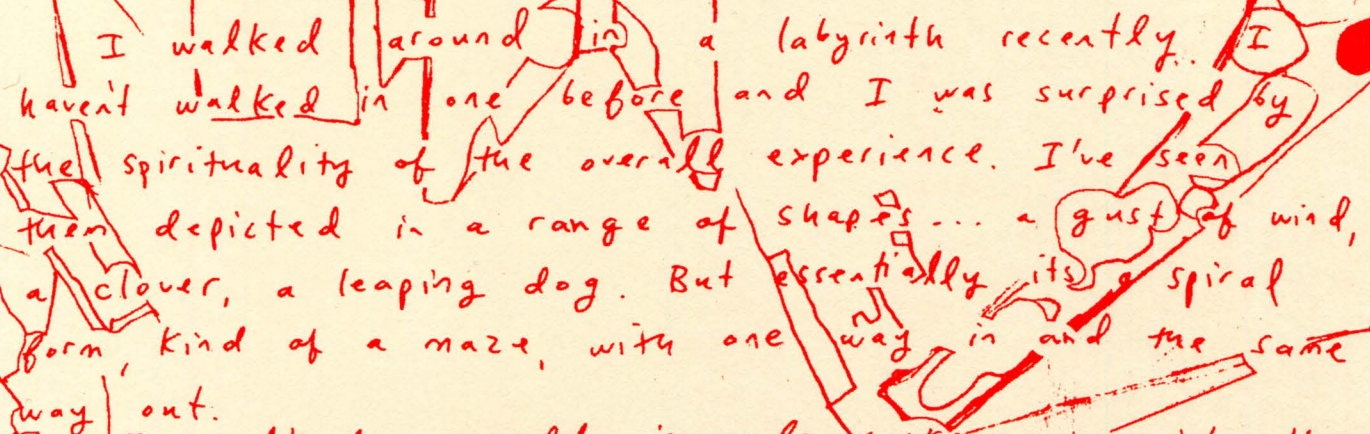 I walked around in a labyrinth recently. I
haven't walked in one before and I was surprised by
the spirituality of the overall experience. I've seen
them depicted in a range of shapes... a gust of wind,
a clover, a leaping dog. But essentially its a spiral
form, kind of a maze, with one way in and the same
way out.